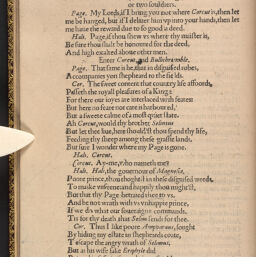 or two souldiers.
Page. My Lords, if I bring you not where Corcut is, then let
me be hanged, but if I deliuer him vp into your hands, then let
me haue the reward due to so good a deed.
Hali. Page, if thou shew vs where thy maister is,
Be sure thou shalt be honoured for the deed,
And high exalted aboue other men.
Enter Corcut and Bullithrumble.
Page. That same is he, that in disguised robes,
Accompanies yon shepheard to the fields.
Cor. The sweet content that country life affoords,
Passeth the royall pleasures of a King:
For there our ioyes are interlaced with feares:
But here no feare nor care is harboured,
But a sweete calme of a most quiet state.
Ah Corcut, would thy brother Selimus
But let thee liue, here shouldst thou spend thy life,
Feeding thy sheep among these grassie lands.
But sure I wonder where my Page is gone.
Hali. Corcut.
Corcut. Ay-me, who nameth me?
Hali. Hali, the gouernour of Magnesia,
Poore prince, thou thoghtst in these disguised weeds,
To maske vnseene, and happily thou might'st,
But that thy Page betraied thee to vs.
And be not wrath with vs vnhappie prince,
If we do what our soueraigne commands.
Tis for thy death that Selim sends for thee.
Cor. Thus I like poore Amphiaraus, sought
By hiding my estate in shepheards coate,
T'escape the angry wrath of Selimus.
But as his wife false Eriphyle did